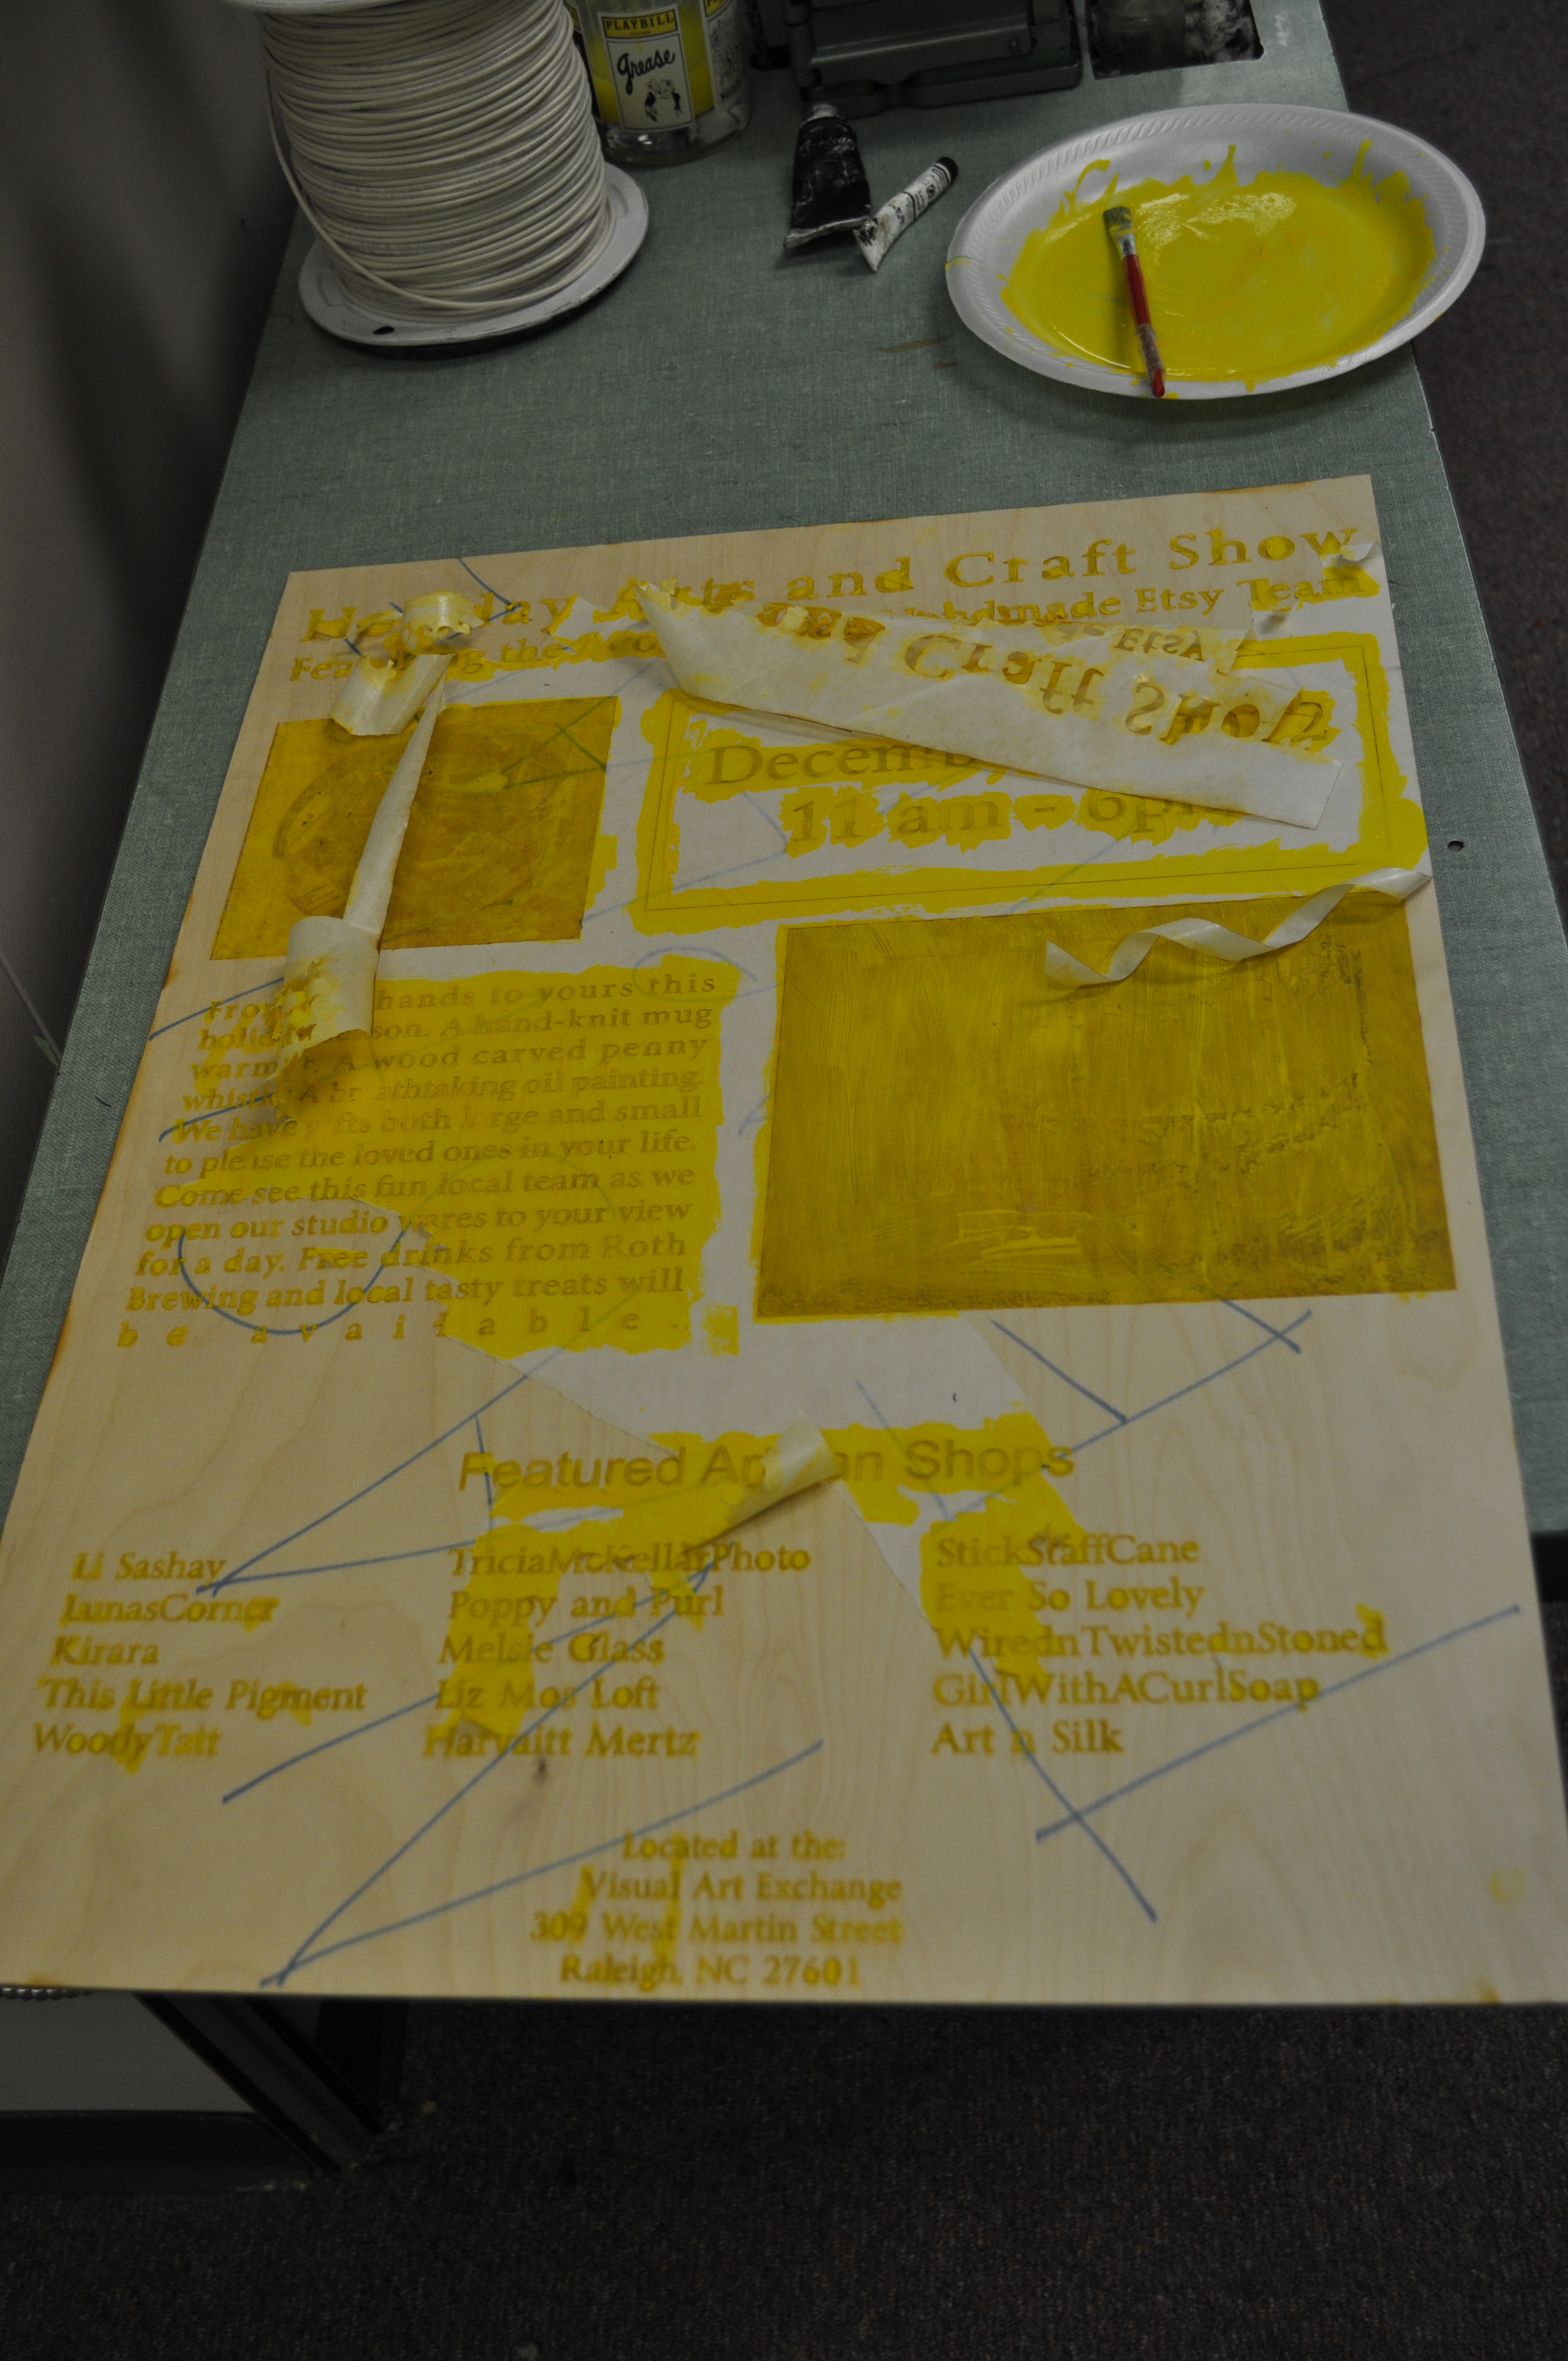 PLAYBILL
Grease
Holiday Arts and Craft Show
Featuring the Handmade Etsy Team
and Craft Show
Etsy
11 am - 6pm
From hands to yours this
holiday season. A hand-knit mug
warmer. A wood carved penny
whistle. A breathtaking oil painting.
We have gifts both large and small
to please the loved ones in your life.
Come see this fun local team as we
open our studio wares to your view
for a day. Free drinks from Roth
Brewing and local tasty treats will
be available.
Featured Artisan Shops
Li Sashay
LunasCorner
Kirara
This Little Pigment
WoodyTatt
TriciaMcKellarPhoto
Poppy and Purl
Melsie Glass
Liz Mos Loft
Harvaitt Mertz
StickStaffCane
Ever So Lovely
WirednTwistednStoned
GirlWithACurlSoap
Art n Silk
Located at the:
Visual Art Exchange
309 West Martin Street
Raleigh, NC 27601